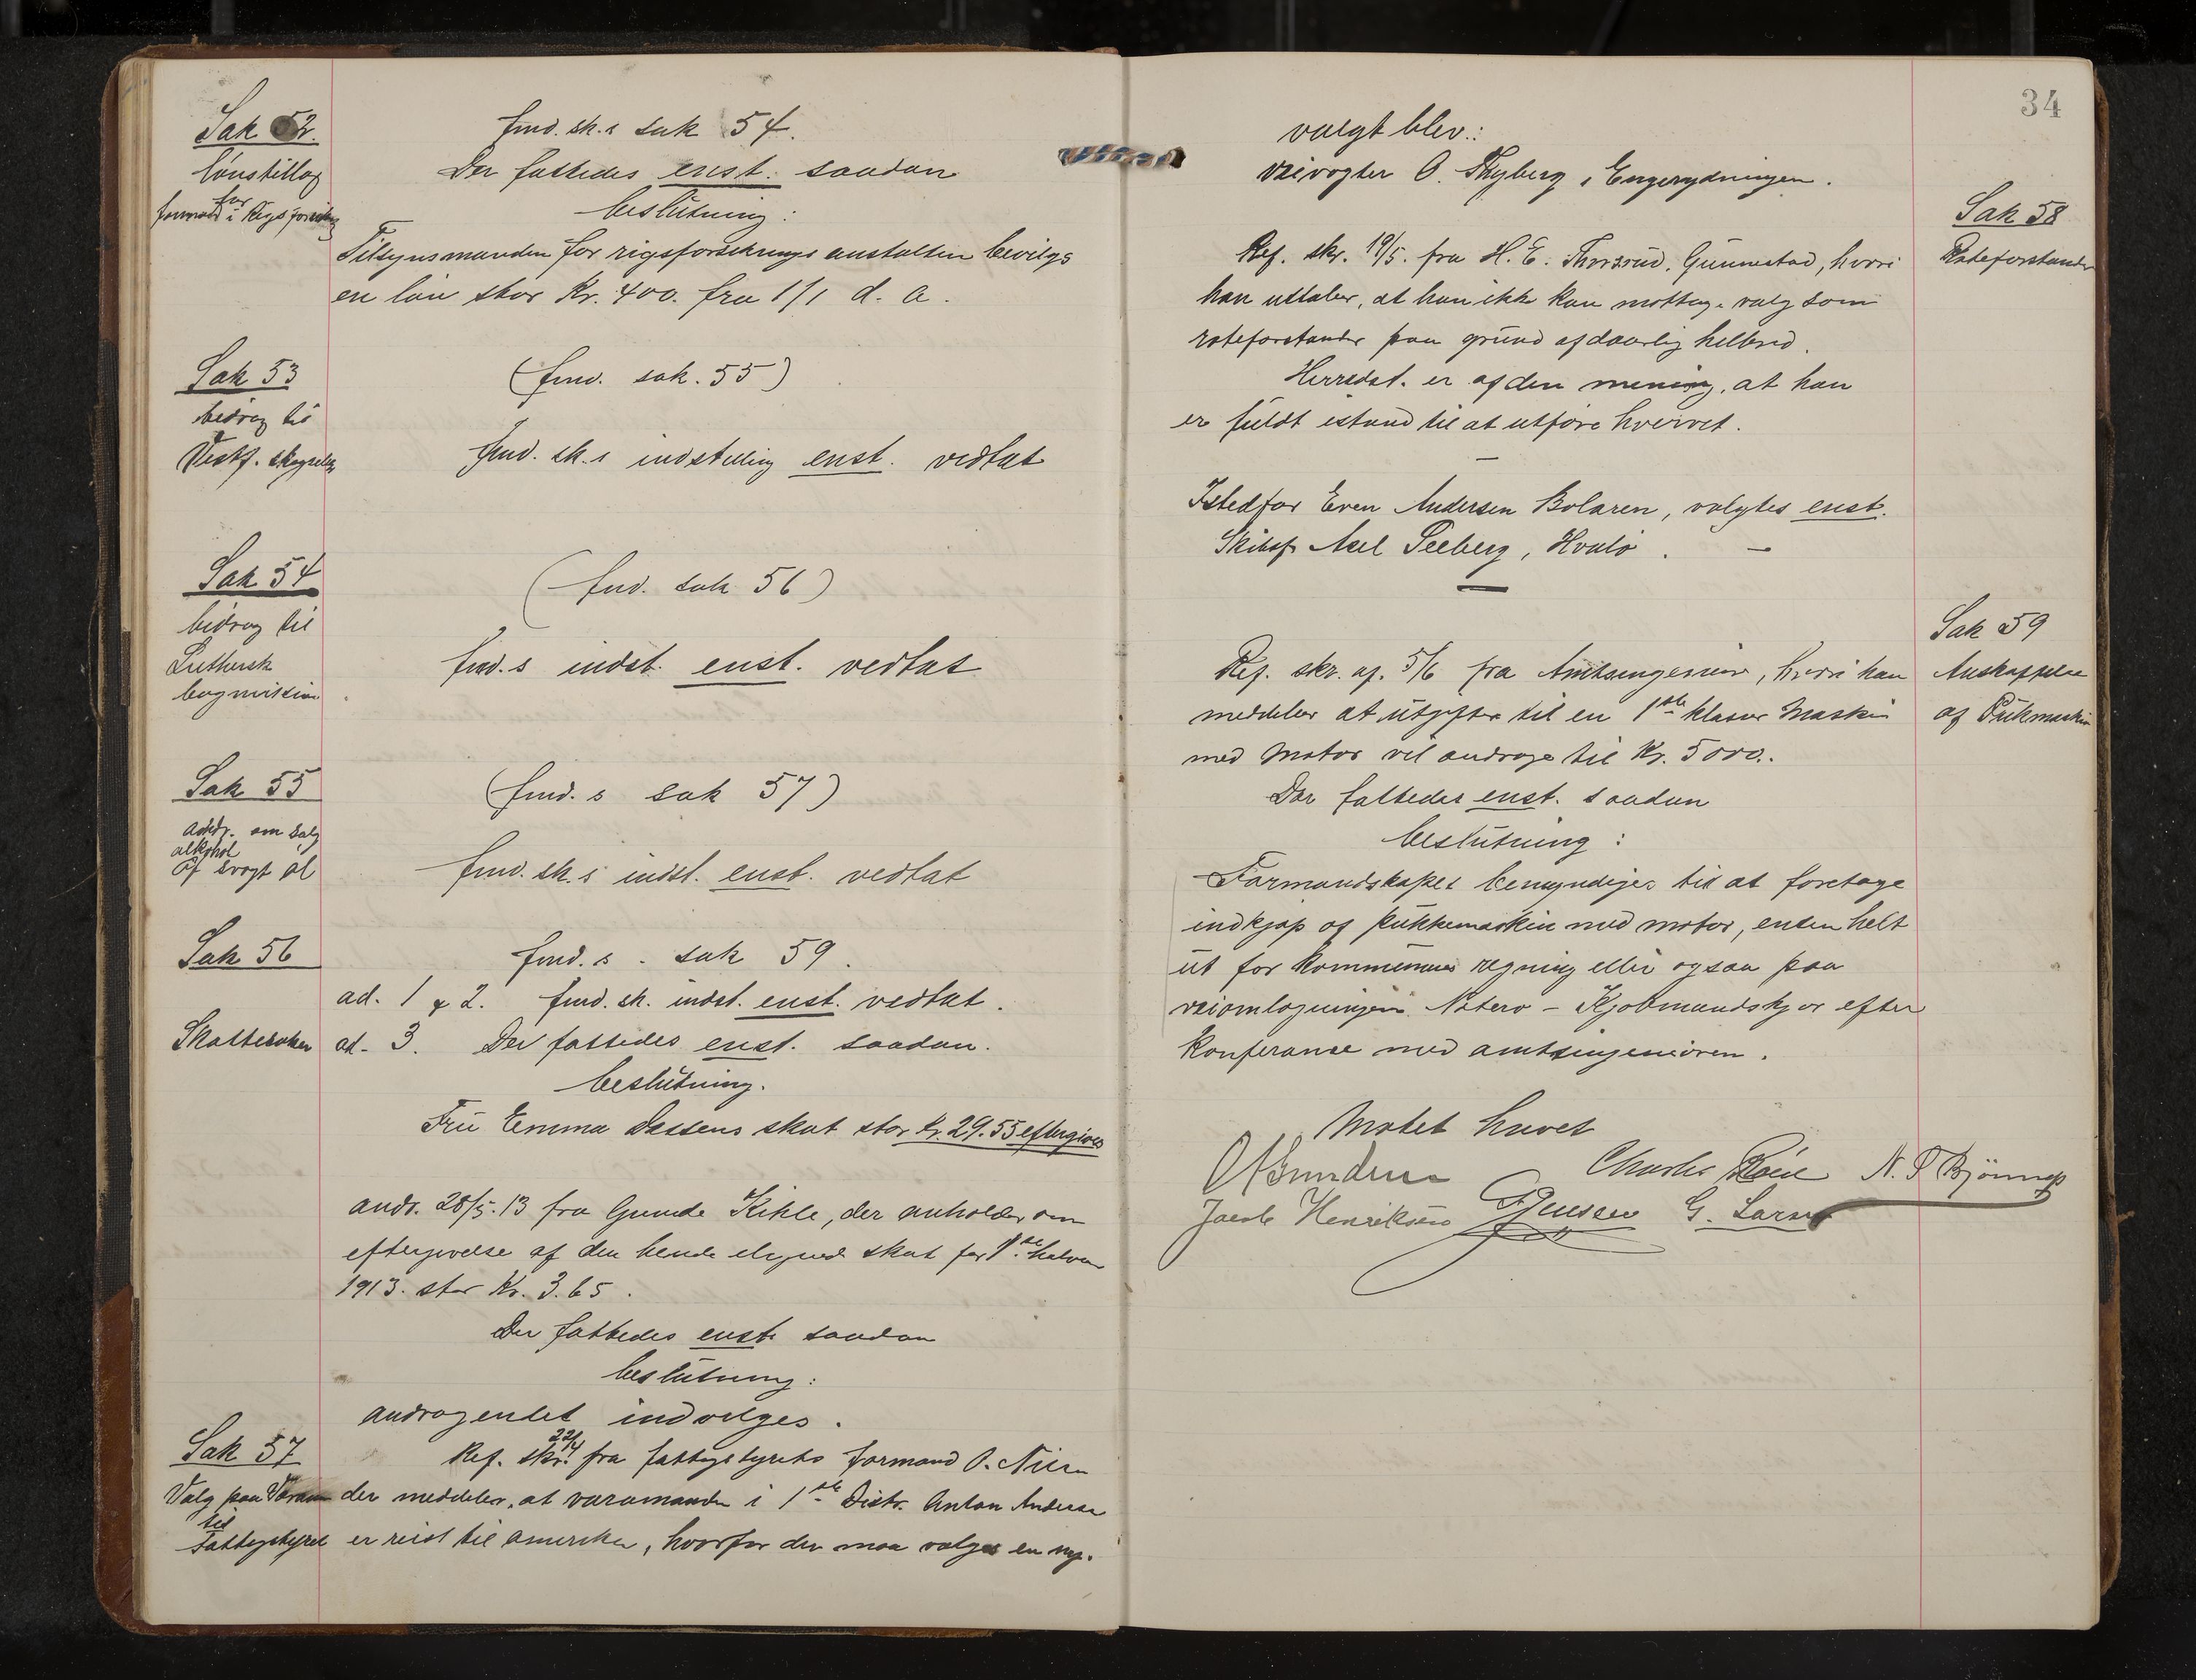 Sak 52.
lønstillæg
for
formand i Rigsforsikring
fmd. sk.s sak 54.
Der fattedes enst. saadan
beslutning:
Tilsynsmanden for rigsforsikrings anstalten bevilges
en løn stor Kr. 400. fra 1/1 d. a.
Sak 53
bidrag til
Vestf. skogselsk
(fmd. sak. 55)
fmd. sk.s indstilling enst. vedtat
Sak 54
bidrag til
Luthersk
bogmission
(fmd. sak 56)
fmd.s indst. enst. vedtat
Sak 55
andr. om salg
alkohol
af svagt øl
(fmd. s sak 57)
fmd. sk.s indst. enst. vedtat
Sak 56
fmd. s. sak 59.
ad. 1 & 2. fmd. sk. indst. enst. vedtat.
Skattesaker
ad. 3. Der fattedes enst. saadan.
beslutning.
Fru Emma Dassens skat stor Kr. 29.55 eftergives
andr. 28/5.13 fra Gunde Kihle, der anholder om
eftergivelse af den hende ilignede skat for 1ste halvaar
1913. stor Kr. 3.65.
Der fattedes enst. saadan
beslutning:
andragendet indvilges.
Sak 57
Valg paa Varam
til
Fattigstyret
Ref. skr. 22/4 fra fattigstyrets formand O. Nilsen
der meddeler, at varamanden i 1ste Distr. Anton Andersen
er reist til Amerika, hvorfor der maa vælges en ny.
34
valgt blev.:
veivogter O. Thyberg, Engerydningen.
Sak 58
Roteforstander
Ref. skr. 19/5. fra H. E. Thorsrud, Gunnestad, hvori
han uttaler, at han ikke kan mottage valg som
roteforstander paa grund af daarlig helbred.
Herredst. er af den mening, at han
er fuldt istand til at utføre hvervet.
Istedfor Even Andersen Bolæren, valgtes enst.
Skibsf. Axel Seeberg, Hvalø.
Sak 59
Anskaffelse
af Pukmaskin
Ref. skr. af. 5/6 fra Amtsingeniøren, hvori han
meddeler at utgifter til en 1ste klasses Maskin
med Motor vil andrage til Kr. 5000.
Der fattedes enst. saadan
beslutning:
Formandskapet bemyndiges til at foretage
indkjøp af pukkemaskin med motor, enten helt
ut for kommunens regning eller ogsaa paa
veiomlægningen Nøterø – Kjøbmandskjær efter
Konferanse med amtsingeniøren.
Møtet hævet
Charles Røed N. P. Bjönnes
Jacob Henriksen Jensen G. Larsen